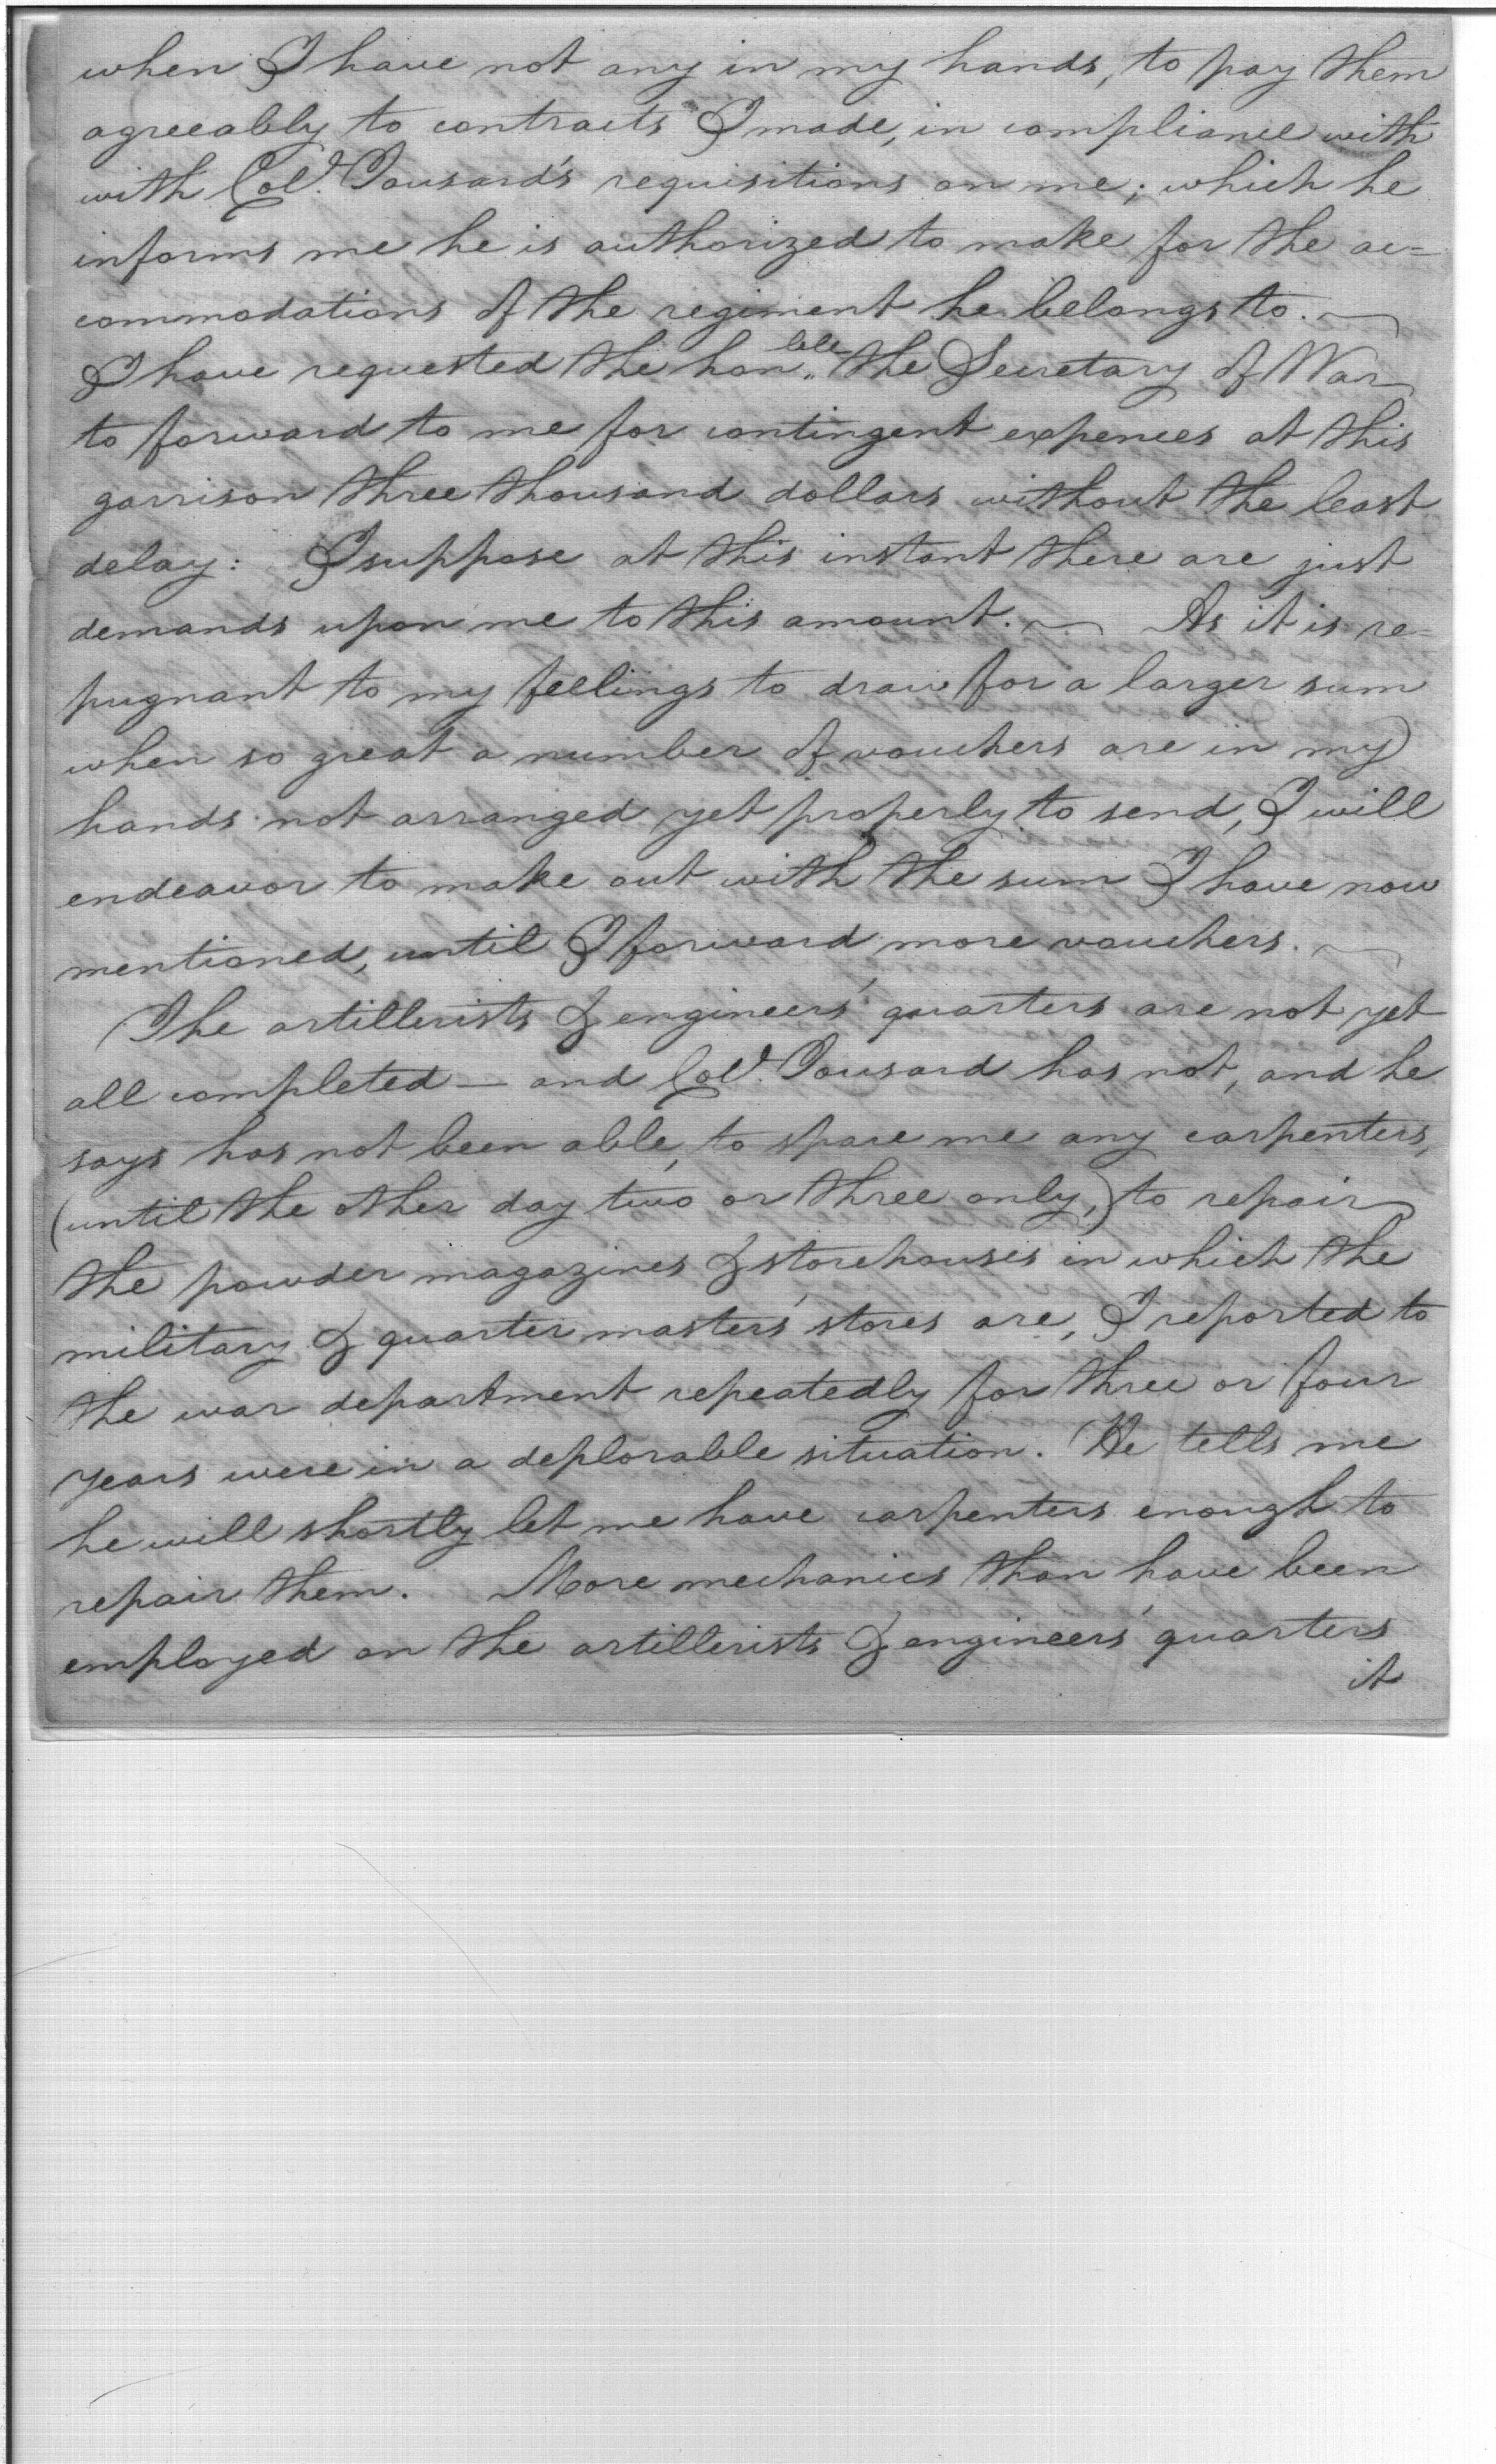 when I have not any in my hands, to pay them
agreeably to contracts I made, in compliance with
with Col? Tousard's requisitions on me; which he
informs me he is authorized to make for the ac=
commodations of the regiment he belongs to.
I have requested the hon,,ble the Secretary of War
to forward to me for contingent expences at this
garrison three thousand dollars without the least
delay: I suppose at this instant there are just
demands upon me to this amount. As it is re-
pugnant to my feelings to draw for a larger sum
when so great a number of vouchers are in my
hands not arranged yet properly to send, I will
endeavor to make out with the sum I have now
mentioned, until I forward more vouchers.
The artillerists & engineers' quarters are not yet
all completed — and Col? Tousard has not, and he
says has not been able, to spare me any carpenters,
(until the other day two or three only,) to repair
the powder magazines & storehouses in which the
military & quarter masters' stores are, I reported to
the war department repeatedly for three or four
years were in a deplorable situation. He tells me
he will shortly let me have carpenters enough to
repair them. More mechanics than have been
employed on the artillerists & engineers' quarters
it